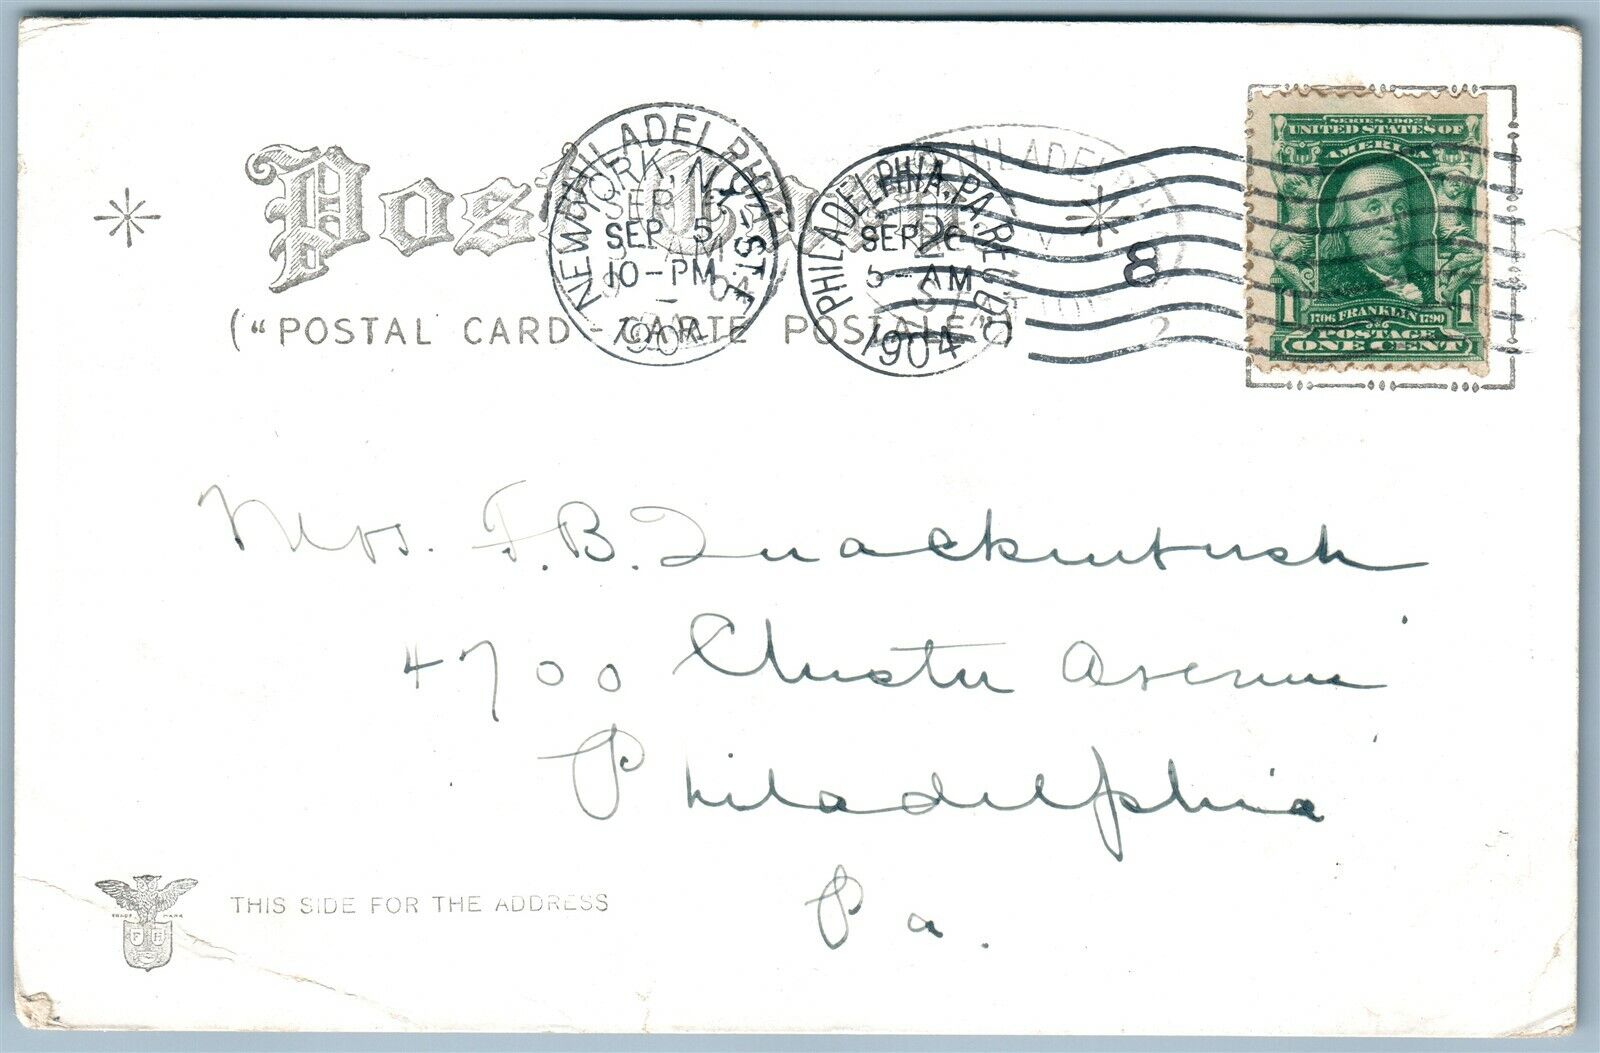 Post Card
("POSTAL CARD - CARTE POSTALE")
NEW YORK, N.Y.
SEP 5
10-PM
1904
PHILADELPHIA, PA. REC'D.
SEP 6
5-AM
1904
PHILADELPHIA
8
2
SERIES 1902
UNITED STATES OF
AMERICA
1 1
1706 FRANKLIN 1790
POSTAGE
ONE CENT
Mrs. F. B. Quackinbush
4700 Chester Avenue
Philadelphia
Pa.
TRADE MARK
F H
THIS SIDE FOR THE ADDRESS